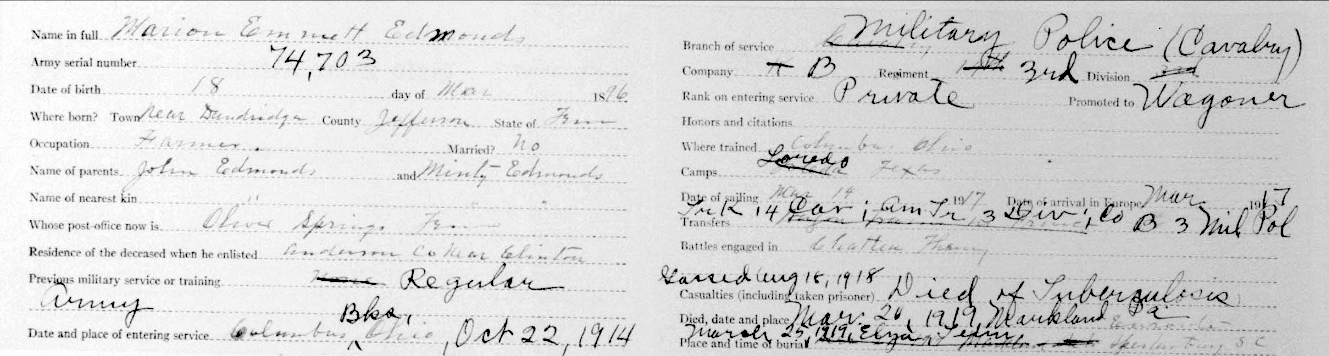 Name in full Marion Emmett Edmonds
Army serial number 74,703
Date of birth 18 day of Mar 1896
Where born? Town Near Dandridge County Jefferson State of Tenn
Occupation Farmer. Married? No
Name of parents John Edmonds and Minty Edmonds
Name of nearest kin
Whose post-office now is Oliver Springs Tenn
Residence of the deceased when he enlisted Anderson Co Near Clinton
Previous military service or training None Regular
Army
Date and place of entering service Columbus Bks, Ohio, Oct 22, 1914
Branch of service Military Police (Cavalry)
Company B Regiment 3rd Division
Rank on entering service Private Promoted to Wagoner
Honors and citations
Where trained Columbus Ohio
Camps Laredo Texas
Date of sailing Mar 14 1917 Date of arrival in Europe Mar 1917
Trk 14 Cav; Am Tr 3 Div; Co B 3 Mil Pol
Transfers
Battles engaged in Chattea Theiry
Gassed Aug 18, 1918
Casualties (including taken prisoner) Died of Tuberculosis
Died, date and place Mar. 20, 1919 Markland Pa
March 25, 1919, Tenn
Place and time of burial S C